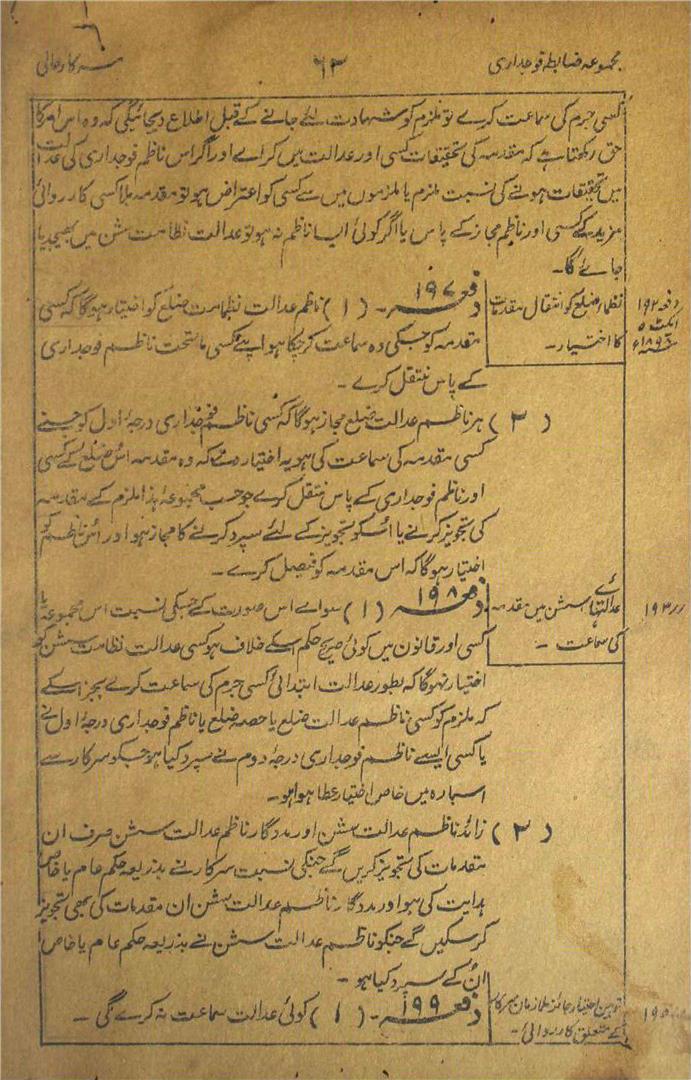 مجموعہ ضابطہ فوجداری ۶۳ سرکارعالی
کسی جرم کی سماعت کرے تو ملزم کو شہادت لئے جانے کے قبل اطلاع دیجائیگی کہ وہ اس امر کا
حق رکھتا ہے کہ مقدمہ کی تحقیقات کسی اور عدالت میں کراے اور اگر اس ناظم فوجداری کی عدالت
میں تحقیقات ہونے کی نسبت ملزم یا ملزموں میں سے کسی کو اعتراض ہو تو مقدمہ بلا کسی کارروائی
مزید کے کسی اور ناظم مجاز کے پاس یا اگر کوئی ایسا ناظم نہ ہو تو عدالت نظامت سشن میں بھیجدیا
جائے گا۔
دفعہ ۱۹۲
ایکٹ ۵
۱۸۹۸ء
نظماء ضلع کو انتقال مقدمات
کا اختیار۔
دفعہ ۱۹۷۔ (۱) ناظم عدالت نظامت ضلع کو اختیار ہوگا کہ کسی
مقدمہ کو جسکی وہ سماعت کرچکا ہو اپنے کسی ماتحت ناظم فوجداری
کے پاس منتقل کرے۔
(۲) ہر ناظم عدالت ضلع مجاز ہوگا کہ کسی ناظم فوجداری درجۂ اول کو جسنے
کسی مقدمہ کی سماعت کی ہو یہ اختیار دے کہ وہ مقدمہ اس ضلع کے کسی
اور ناظم فوجداری کے پاس منتقل کرے جو حسب مجموعۂ ہذا ملزم کے مقدمہ
کی تجویز کرنے یا اسکو تجویز کے لئے سپرد کرنے کا مجاز ہو اور اس ناظم کو
اختیار ہوگا کہ اس مقدمہ کو فیصل کرے۔
〃 ۱۹۳
عدالتہائے سشن میں مقدمہ
کی سماعت۔
دفعہ ۱۹۸ (۱) سواے اس صورت کے جسکی نسبت اس مجموعہ یا
کسی اور قانون میں کوئی صریح حکم اسکے خلاف ہو کسی عدالت نظامت سشن کو
اختیار نہوگا کہ بطور عدالت ابتدائی کسی جرم کی سماعت کرے بجز اسکے
کہ ملزم کو کسی ناظم عدالت ضلع یا حصہ ضلع یا ناظم فوجداری درجۂ اول نے
یا کسی ایسے ناظم فوجداری درجۂ دوم نے سپرد کیا ہو جسکو سرکار سے
اسبارہ میں خاص اختیار عطا ہوا ہو۔
(۲) زائد ناظم عدالت سشن اور مددگار ناظم عدالت سشن صرف ان
مقدمات کی تجویز کریں گے جنکی نسبت سرکار نے بذریعہ حکم عام یا خاص
ہدایت کی ہو اور مددگار ناظم عدالت سشن ان مقدمات کی بھی تجویز
کرسکیں گے جنکو ناظم عدالت سشن نے بذریعہ حکم عام یا خاص
اُن کے سپرد کیا ہو۔
توہین اختیار جائز ملازمان سرکار
کے متعلق کارروائی۔
دفعہ ۱۹۹۔ (۱) کوئی عدالت سماعت نہ کرے گی۔